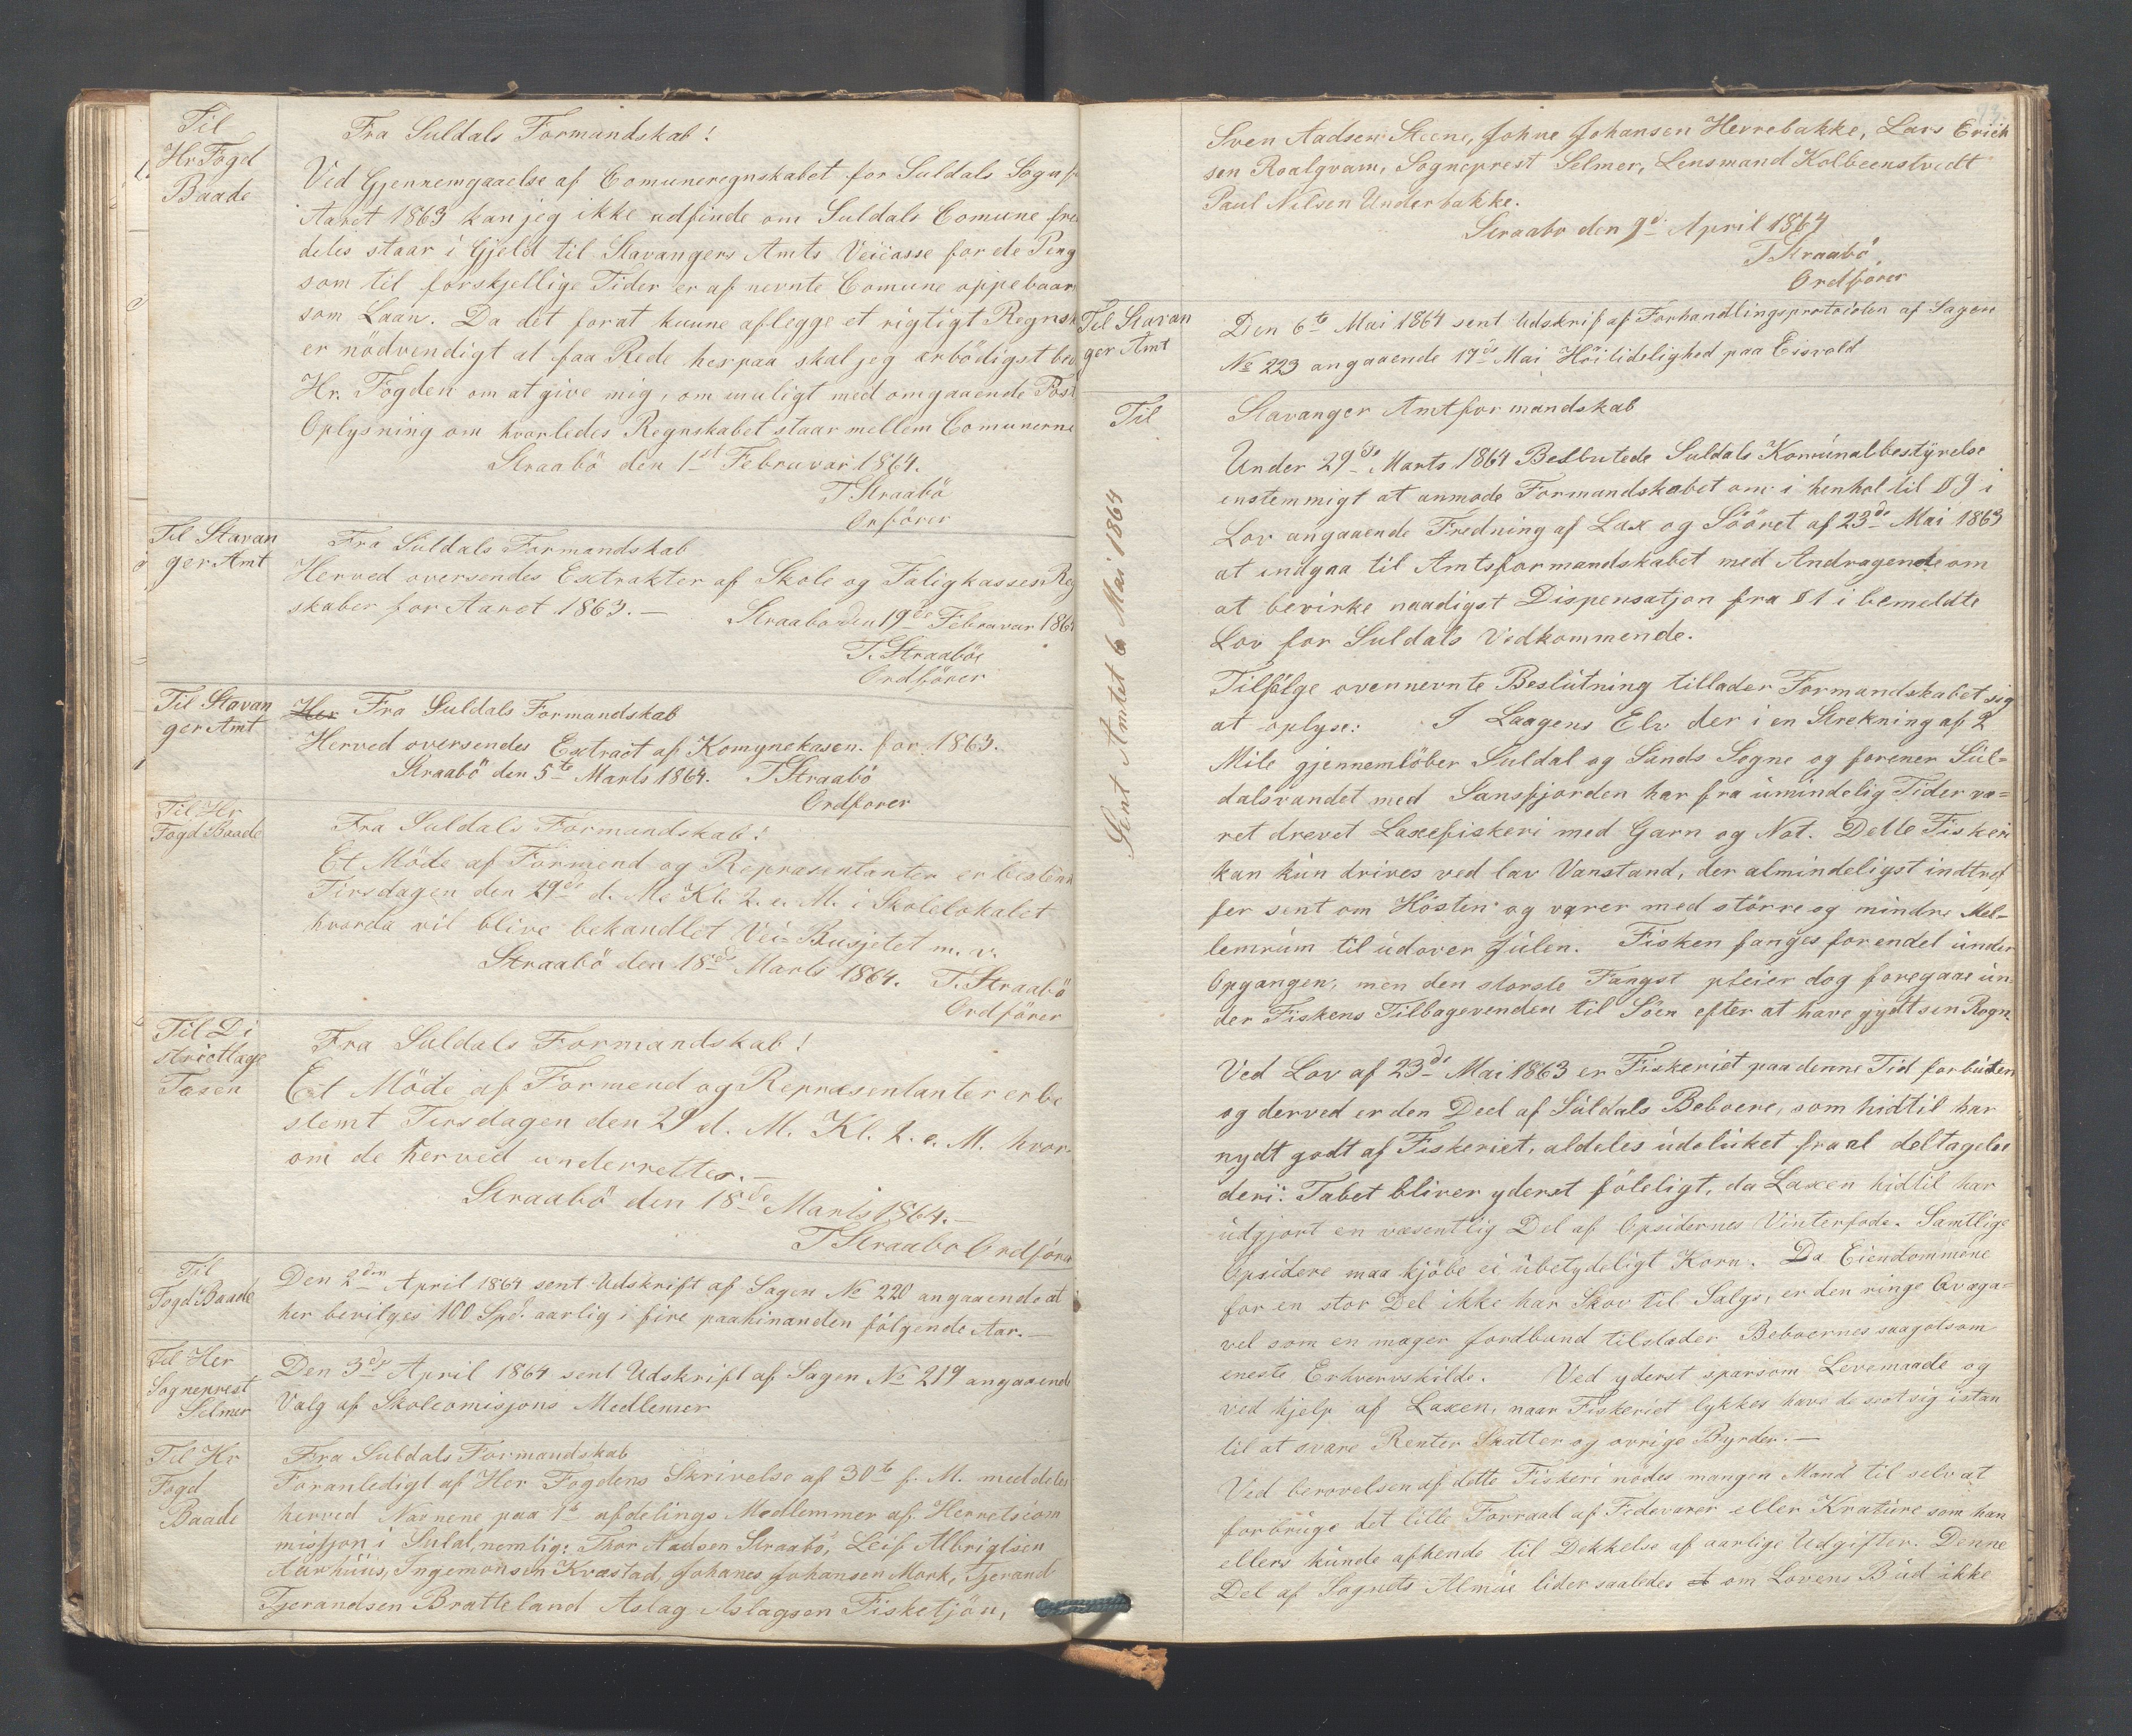 Til
Hr. Fogd
Baade
Fra Suldals Formandskab!
Ved Gjennemgaaelse af Comuneregnskabet for Suldals Sogn f
Aaret 1863 kan jeg ikke udfinde om Suldals Comune frem
deles staar i Gjeld til Stavangers Amts Veicasse for de Peng
som til forskjellige Tider er af nevnte Comune oppebaar
som Laan. Da det forat kunne aflegge et rigtigt Regnsk
er nödvendigt at faa Rede herpaa skal jeg ærbödigst bed
Hr. Fogden om at give mig, om muligt med omgaaende Post
Oplysning om hvorledes Regnskabet staar mellem Comunerne
Straabö den 1st Februvar 1864.
T Straabö
Orförer
Til Stavan
ger Amt
Fra Suldals Formandskab
Herved oversendes Extrakter af Skole og Fatigkassen Reg
skaber for Aaret 1863. —
Straabö den 19de Februvar 1864
T. Straabö
Ordförer
Til Stavan
ger Amt
Her Fra Suldals Formandskab
Herved oversendes Extract af Komynekasen. for 1863.
Straabö den 5te Marts 1864. T Straabö
Ordforer
Til Hr
Fogd Baade
Fra Suldals Formandskab!
Et Möde af Formend og Repræsentanter er bestemt
Tirsdagen den 29de d. M. Kl. 2. e. M. i Skolelokalet
hvorda vil blive behandlet Vei-Busjetet m. v.
Straabö den 18de Marts 1864. T. Straabö
Ordförer
Til Di
strictlæge
Tosen
Fra Suldals Formandskab!
Et Möde af Formend og Repræsentanter er be
stemt Tirsdagen den 29 d. M. Kl. 2. e. M. hvor
om de herved underrettes. —
Straabö den 18de Marts 1864. —
T Straabo Ordförer
Til
Fogd Baade
Den 2den April 1864 sent Udskrift af Sagen No 220 angaaende at
her bevilges 100 Spd. aarlig i fire paahinanden fölgende Aar. —
Til Her
Sogneprest
Selmer
Den 3de April 1864 sent Udskrift af Sagen No 219 angaaende
Valg af Skolecomisjons Medlemer
Til Hr
Fogd
Baade
Fra Suldals Formandskab
Foranledigt af Her Fogdens Skrivelse af 30te f. M. meddeles
herved Navnene paa 1te afdelings Medlemmer af Herretscom
misjon i Sulal, nemlig: Thor Aadsen Straabö, Leif Albrigtsen
Aarhuus, Ingemonsen Kvæstad, Johanes Johansen Mork, Tjerand
Tjerandsen Bratteland Aslag Aslagsen Fisketjön,
Sven Aadsen Steene, Johne Johansen Herrebakke, Lars Erich
sen Roalgvam, Sogneprest Selmer, Lensmand Kolbeenstvedt
Paul Nilsen Underbakke.
Straabo den 9d. April 1864
T Straabö
Ordförer
Til Stavan
ger Amt
Den 6te Mai 1864 sent Udskrif af Forhandlingsprotocolen af Sagen
No 223 angaaende 17de Mai Höitidelighed paa Eisvold
Til
Stavanger Amtformandskab
Sent Amtet 6 Mai 1864
Under 29de Marts 1864 Beslutede Suldals Komúnalbestyrelse
enstemmigt at anmode Formandskabet om i henhol til § 9 i
Lov angaaende Fredning af Lax og Sööret af 23de Mai 1863
at indgaa til Amtsformandskabet med Andragende om
at bevirke naadigst Dispensatjon fra § 1 i bemeldte
Lov for Suldals Vedkommende.
Tilfölge ovennevnte Beslutning tillader Formandskabet sig
at oplyse: I Laagens Elv der i en Strekning af 2
Mile gjennemlöber Suldal og Sands Sogne og forener Súl-
dalsvandet med Sansfjorden har fra umindelig Tider va-
ret drevet Laxefiskeri med Garn og Not. Dette Fiskeri
kan kún drives ved lav Vanstand, der almindeligst indtref
fer sent om Hösten og varer med större og mindre Mel-
lemrúm til údover Júlen. Fisken fanges for endel únder
Opgangen, men den storste Fangst pleier dog foregaae ún-
der Fiskens Tilbagevenden til Söen efter at have gydt sin Rogn.
Ved Lov af 23de Mai 1863 er Fiskeriet paa denne Tid forbúden
og derved er den Deel af Súldals Beboere, som hidtil har
nydt godt af Fiskeriet, aldeles údelúket fra al deltagelse
deri. Tabet bliver yderst föleligt, da Laxen hidtil har
údgjort en væsentlig Del af Opsidernes Vinterfode. Samtlige
Opsidere maa kjöbe ei úbetydeligt Korn. Da Eiendommene
for en stor Del ikke har Skov til Salgs, er den ringe Qvæga-
vel som en mager Jordbund tilstæder Beboernes saagotsom
eneste Erhvervskilde. Ved yderst sparsom Levemaade og
ved hjelp af Laxen, naar Fiskeriet lykkes have de seet sig istan
til at svare Renter Skatter og ovrige Byrder. —
Ved berovelsen af dette Fiskeri nödes mangen Mand til selv at
forbrúge det lille Forraad af Fedevarer eller Kratúre som han
ellers kúnde afhende til Dekkelse af aarlige Udgifter. Denne
Del af Sognets Almúe lider saaledes om Lovens Búd ikke